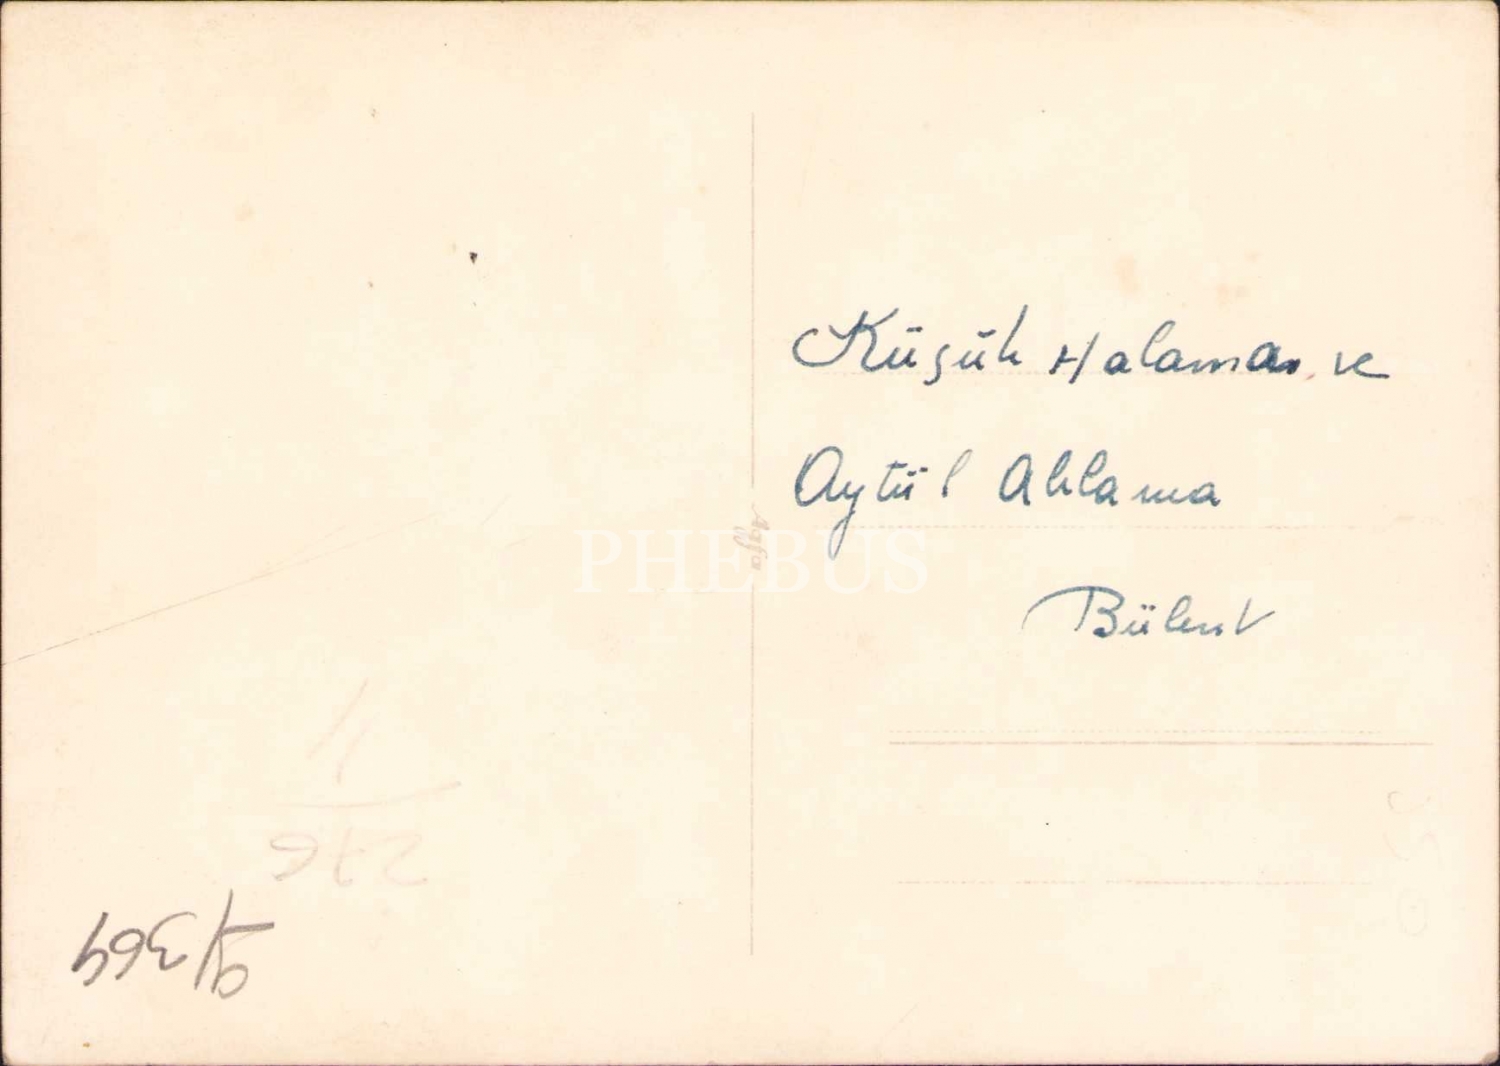 Küçük Halama ve
Aytül Ablama
Bülent
Agfa
PHEBUS
276